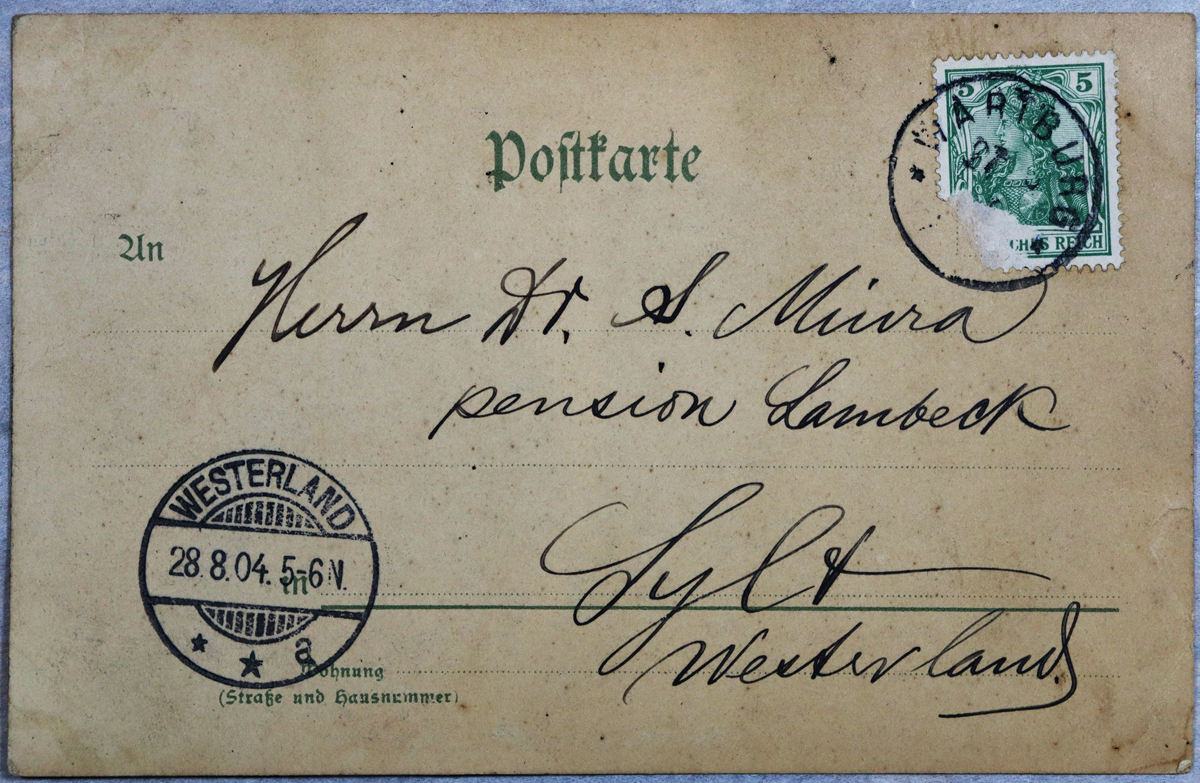 5 5
WARTBURG
27
CHES REICH
Postkarte
An
Herrn Dr. S. Miura
pension Lambeck
WESTERLAND
28.8.04. 5-6 N.
a
in
Sylt
Westerland.
Wohnung
(Straße und Hausnummer)